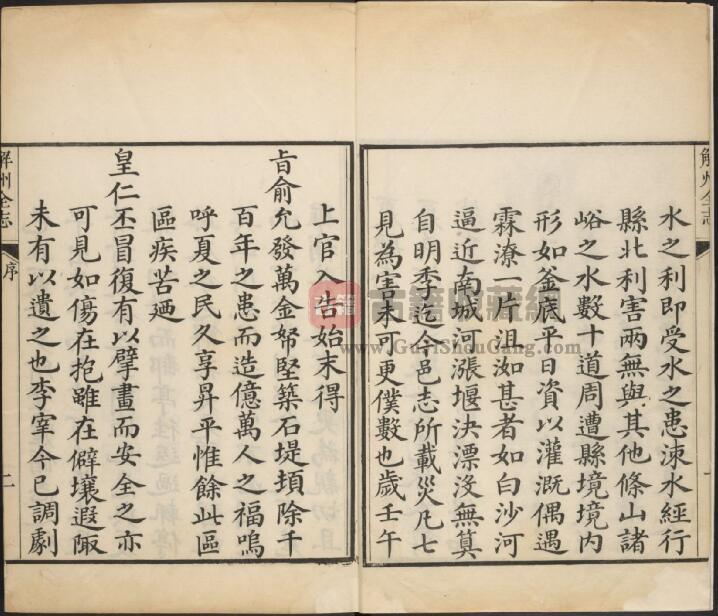 水之利即受水之患涑水經行
縣北利害兩無與其他條山諸
峪之水數十道周遭縣境境内
形如釜底平日資以灌溉偶遇
霖潦一片沮洳甚者如白沙河
逼近南城河漲堰決漂沒無算
自明季迄今邑志所載災凡七
見為害未可更僕數也歲壬午
解州全志
上官入告始末得
旨俞允發萬金帑堅築石堤頓除千
百年之患而造億萬人之福嗚
呼夏之民久享昇平惟餘此區
區疾苦廼
皇仁丕冒復有以擘畫而安全之亦
可見如傷在抱雖在僻壤遐陬
未有以遺之也李宰今已調劇
解州全志
序
二
古籍收藏網
www.GuJiShouCang.com